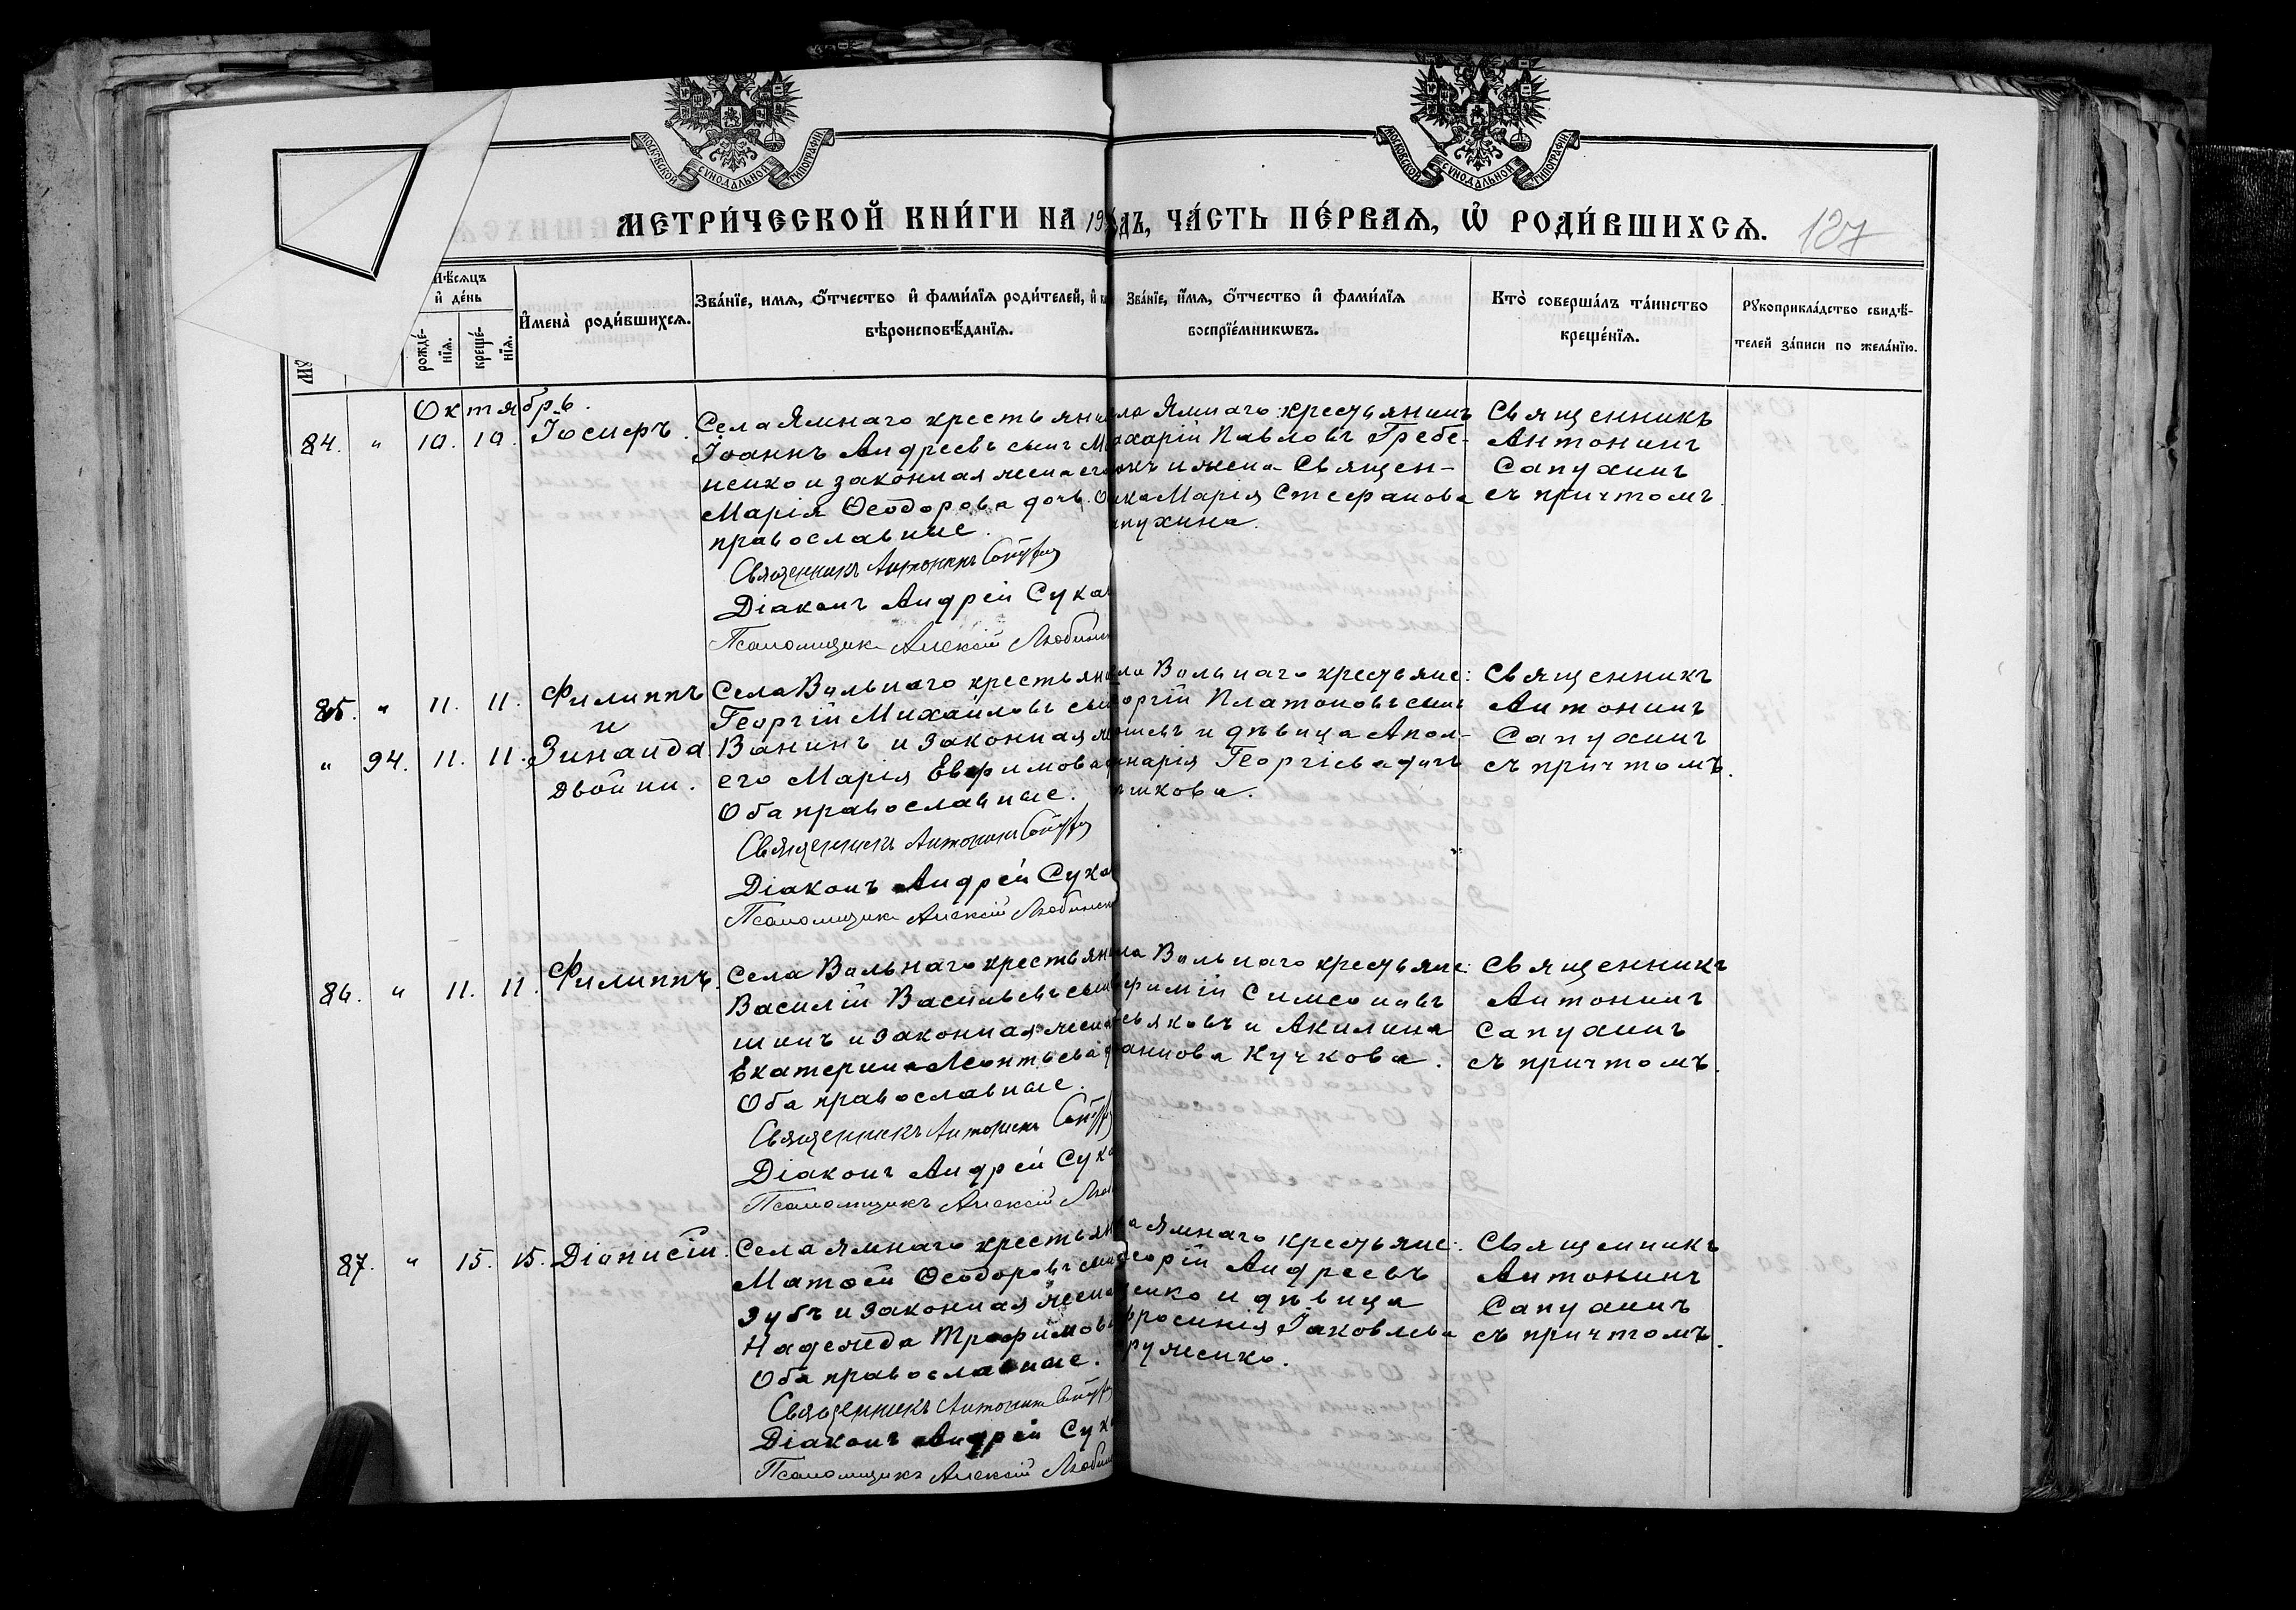 МОСКОВСКОЙ СѴНОДАЛЬНОЙ ТИПОГРАФІИ
МОСКОВСКОЙ СѴНОДАЛЬНОЙ ТИПОГРАФІИ
МЕТРИ́ЧЕСКОЙ КНИ́ГИ НА 19 ДЪ, ЧА́СТЬ ПЕ́РВАѦ, Ѡ҆ РОДИ́ВШИХСѦ.
127
Мѣ́сѧцъ и҆ де́нь
рожде́-нїѧ.
креще́-нїѧ.
И҆мена̀ роди́вшихсѧ.
Зва́нїе, имѧ, ѻ҆́тчество и҆ фами́лїѧ роди́телей, и҆
вѣроисповѣ́данїѧ.
Зва́нїе, и҆́мѧ, ѻ҆́тчество и҆ фами́лїѧ
воспрїе́мникѡвъ.
Кто̀ соверша́лъ та́инство
креще́нїѧ.
Рꙋкоприкла́дство свидѣ́-
телей за́писи по жела́нїю.
Октябрь.
84. " 10. 10. Іосифъ.
Села Ямнаго крестьян
Іоаннъ Андреевъ сынъ
ненко и законная жена его
Марія Ѳеодорова дочь. О
православные.
Священникъ Антонинъ Сапухин
Діаконъ Андрей Сука
Псаломщикъ Алексій Любинск
ла Ямнаго: крестьянинъ
харій Павловъ Гребе-
окъ и жена Священ-
ика Марія Стефанова
пухина.
Священникъ
Антонинъ
Сапухинъ
съ причтомъ.
85. " 11. 11. Филиппъ
и
" 94. 11. 11. Зинаида
двойни.
Села Вольнаго крестьян
Георгій Михайловъ сын
Ванинъ и законная ж
его Марія Евфимова
Оба православные.
Священникъ Антонинъ Сапухин
Діаконъ Андрей Сука
Псаломщикъ Алексій Любинск
ла Вольнаго крестьяне:
оргій Платоновъ сынъ
и дѣвица Апол-
инарія Георгіева дочь
шкова.
Священникъ
Антонинъ
Сапухинъ
съ причтомъ.
86. " 11. 11. Филиппъ.
Села Вольнаго крестьян
Василій Васильевъ сын
шинъ и законная жена
Екатерина Леонтьева д
Оба православные.
Священникъ Антонинъ Сапух
Діаконъ Андрей Сук
Псаломщикъ Алексій Люб
ла Вольнаго крестьяне:
фимій Симеоновъ
ьяковъ и Акилина
анова Кучкова.
Священникъ
Антонинъ
Сапухинъ
съ причтомъ.
87. " 15. 15. Діонисій.
Села Ямнаго крестьян
Матѳей Ѳеодоровъ сын
Зубъ и законная жена
Надежда Трофимов
Оба православные.
Священникъ Антонинъ Сапух
Діаконъ Андрей Сук
Псаломщикъ Алексій Любин
а Ямнаго крестьяне:
еоргій Андреевъ
енко и дѣвица
фросинія Іаковлева
руженко.
Священникъ
Антонинъ
Сапухинъ
съ причтомъ.